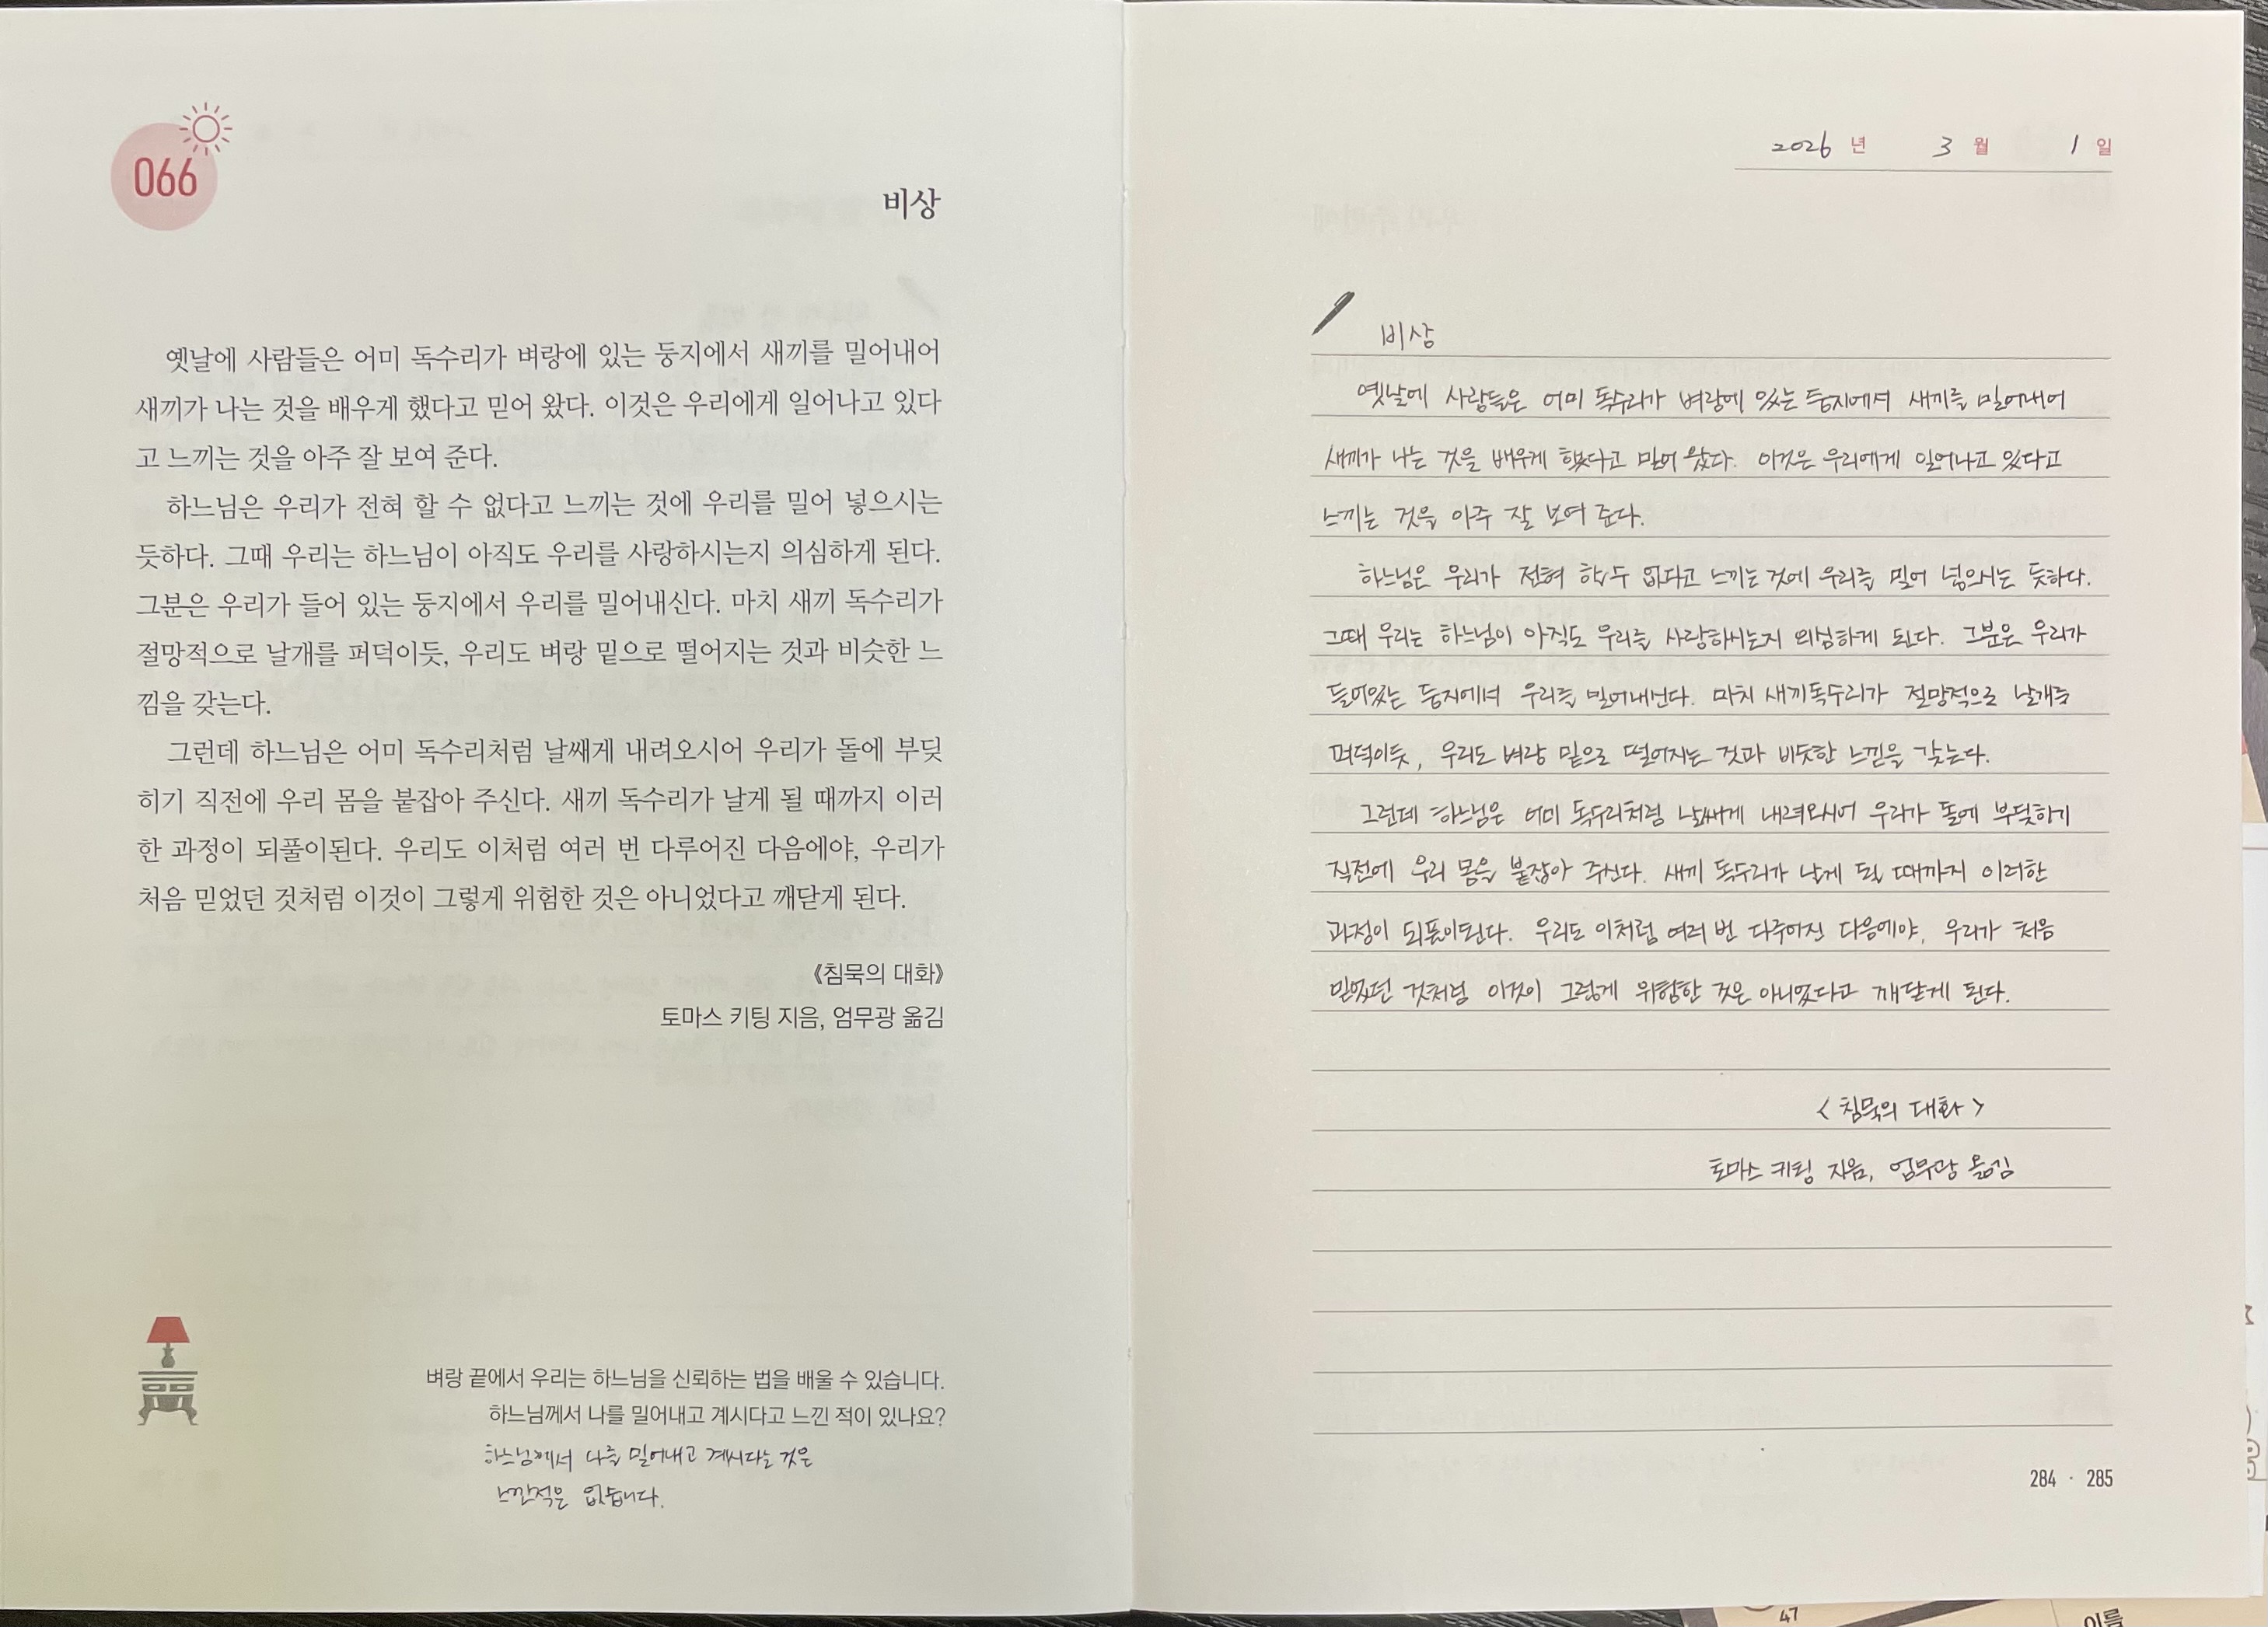 066
비상
옛날에 사람들은 어미 독수리가 벼랑에 있는 둥지에서 새끼를 밀어내어
새끼가 나는 것을 배우게 했다고 믿어 왔다. 이것은 우리에게 일어나고 있다
고 느끼는 것을 아주 잘 보여 준다.
하느님은 우리가 전혀 할 수 없다고 느끼는 것에 우리를 밀어 넣으시는
듯하다. 그때 우리는 하느님이 아직도 우리를 사랑하시는지 의심하게 된다.
그분은 우리가 들어 있는 둥지에서 우리를 밀어내신다. 마치 새끼 독수리가
절망적으로 날개를 퍼덕이듯, 우리도 벼랑 밑으로 떨어지는 것과 비슷한 느
낌을 갖는다.
그런데 하느님은 어미 독수리처럼 날쌔게 내려오시어 우리가 돌에 부딪
히기 직전에 우리 몸을 붙잡아 주신다. 새끼 독수리가 날게 될 때까지 이러
한 과정이 되풀이된다. 우리도 이처럼 여러 번 다루어진 다음에야, 우리가
처음 믿었던 것처럼 이것이 그렇게 위험한 것은 아니었다고 깨닫게 된다.
《침묵의 대화》
토마스 키팅 지음, 엄무광 옮김
벼랑 끝에서 우리는 하느님을 신뢰하는 법을 배울 수 있습니다.
하느님께서 나를 밀어내고 계시다고 느낀 적이 있나요?
하느님께서 나를 밀어내고 계시다는 것은
느낀적은 없습니다.
2026 년 3 월 1 일
비상
옛날에 사람들은 어미 독수리가 벼랑에 있는 둥지에서 새끼를 밀어내어
새끼가 나는 것을 배우게 했다고 믿어 왔다. 이것은 우리에게 일어나고 있다고
느끼는 것을 아주 잘 보여 준다.
하느님은 우리가 전혀 할 수 없다고 느끼는 것에 우리를 밀어 넣으시는 듯하다.
그때 우리는 하느님이 아직도 우리를 사랑하시는지 의심하게 된다. 그분은 우리가
들어있는 둥지에서 우리를 밀어내신다. 마치 새끼독수리가 절망적으로 날개를
퍼덕이듯, 우리도 벼랑 밑으로 떨어지는 것과 비슷한 느낌을 갖는다.
그런데 하느님은 어미 독수리처럼 날쌔게 내려오시어 우리가 돌에 부딪히기
직전에 우리 몸을 붙잡아 주신다. 새끼 독수리가 날게 될 때까지 이러한
과정이 되풀이된다. 우리도 이처럼 여러 번 다루어진 다음에야, 우리가 처음
믿었던 것처럼 이것이 그렇게 위험한 것은 아니었다고 깨닫게 된다.
<침묵의 대화>
토마스 키팅 지음, 엄무광 옮김
284 · 285
47
이름